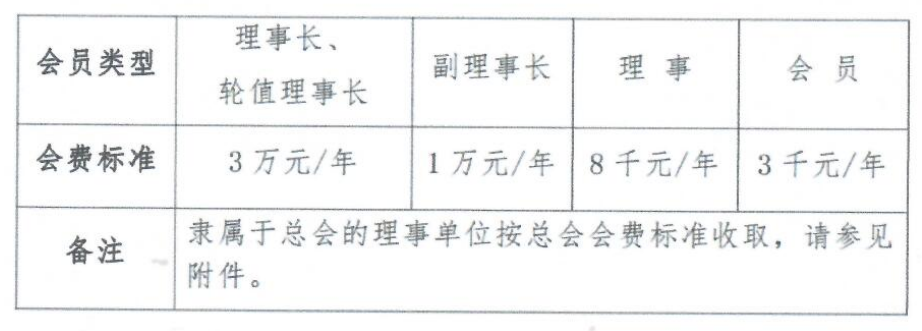 会员类型 理事长、 副理事长 理 事 会 员
轮值理事长
会费标准 3万元/年 1万元/年 8千元/年 3千元/年
备注 隶属于总会的理事单位按总会会费标准收取，请参见
附件。